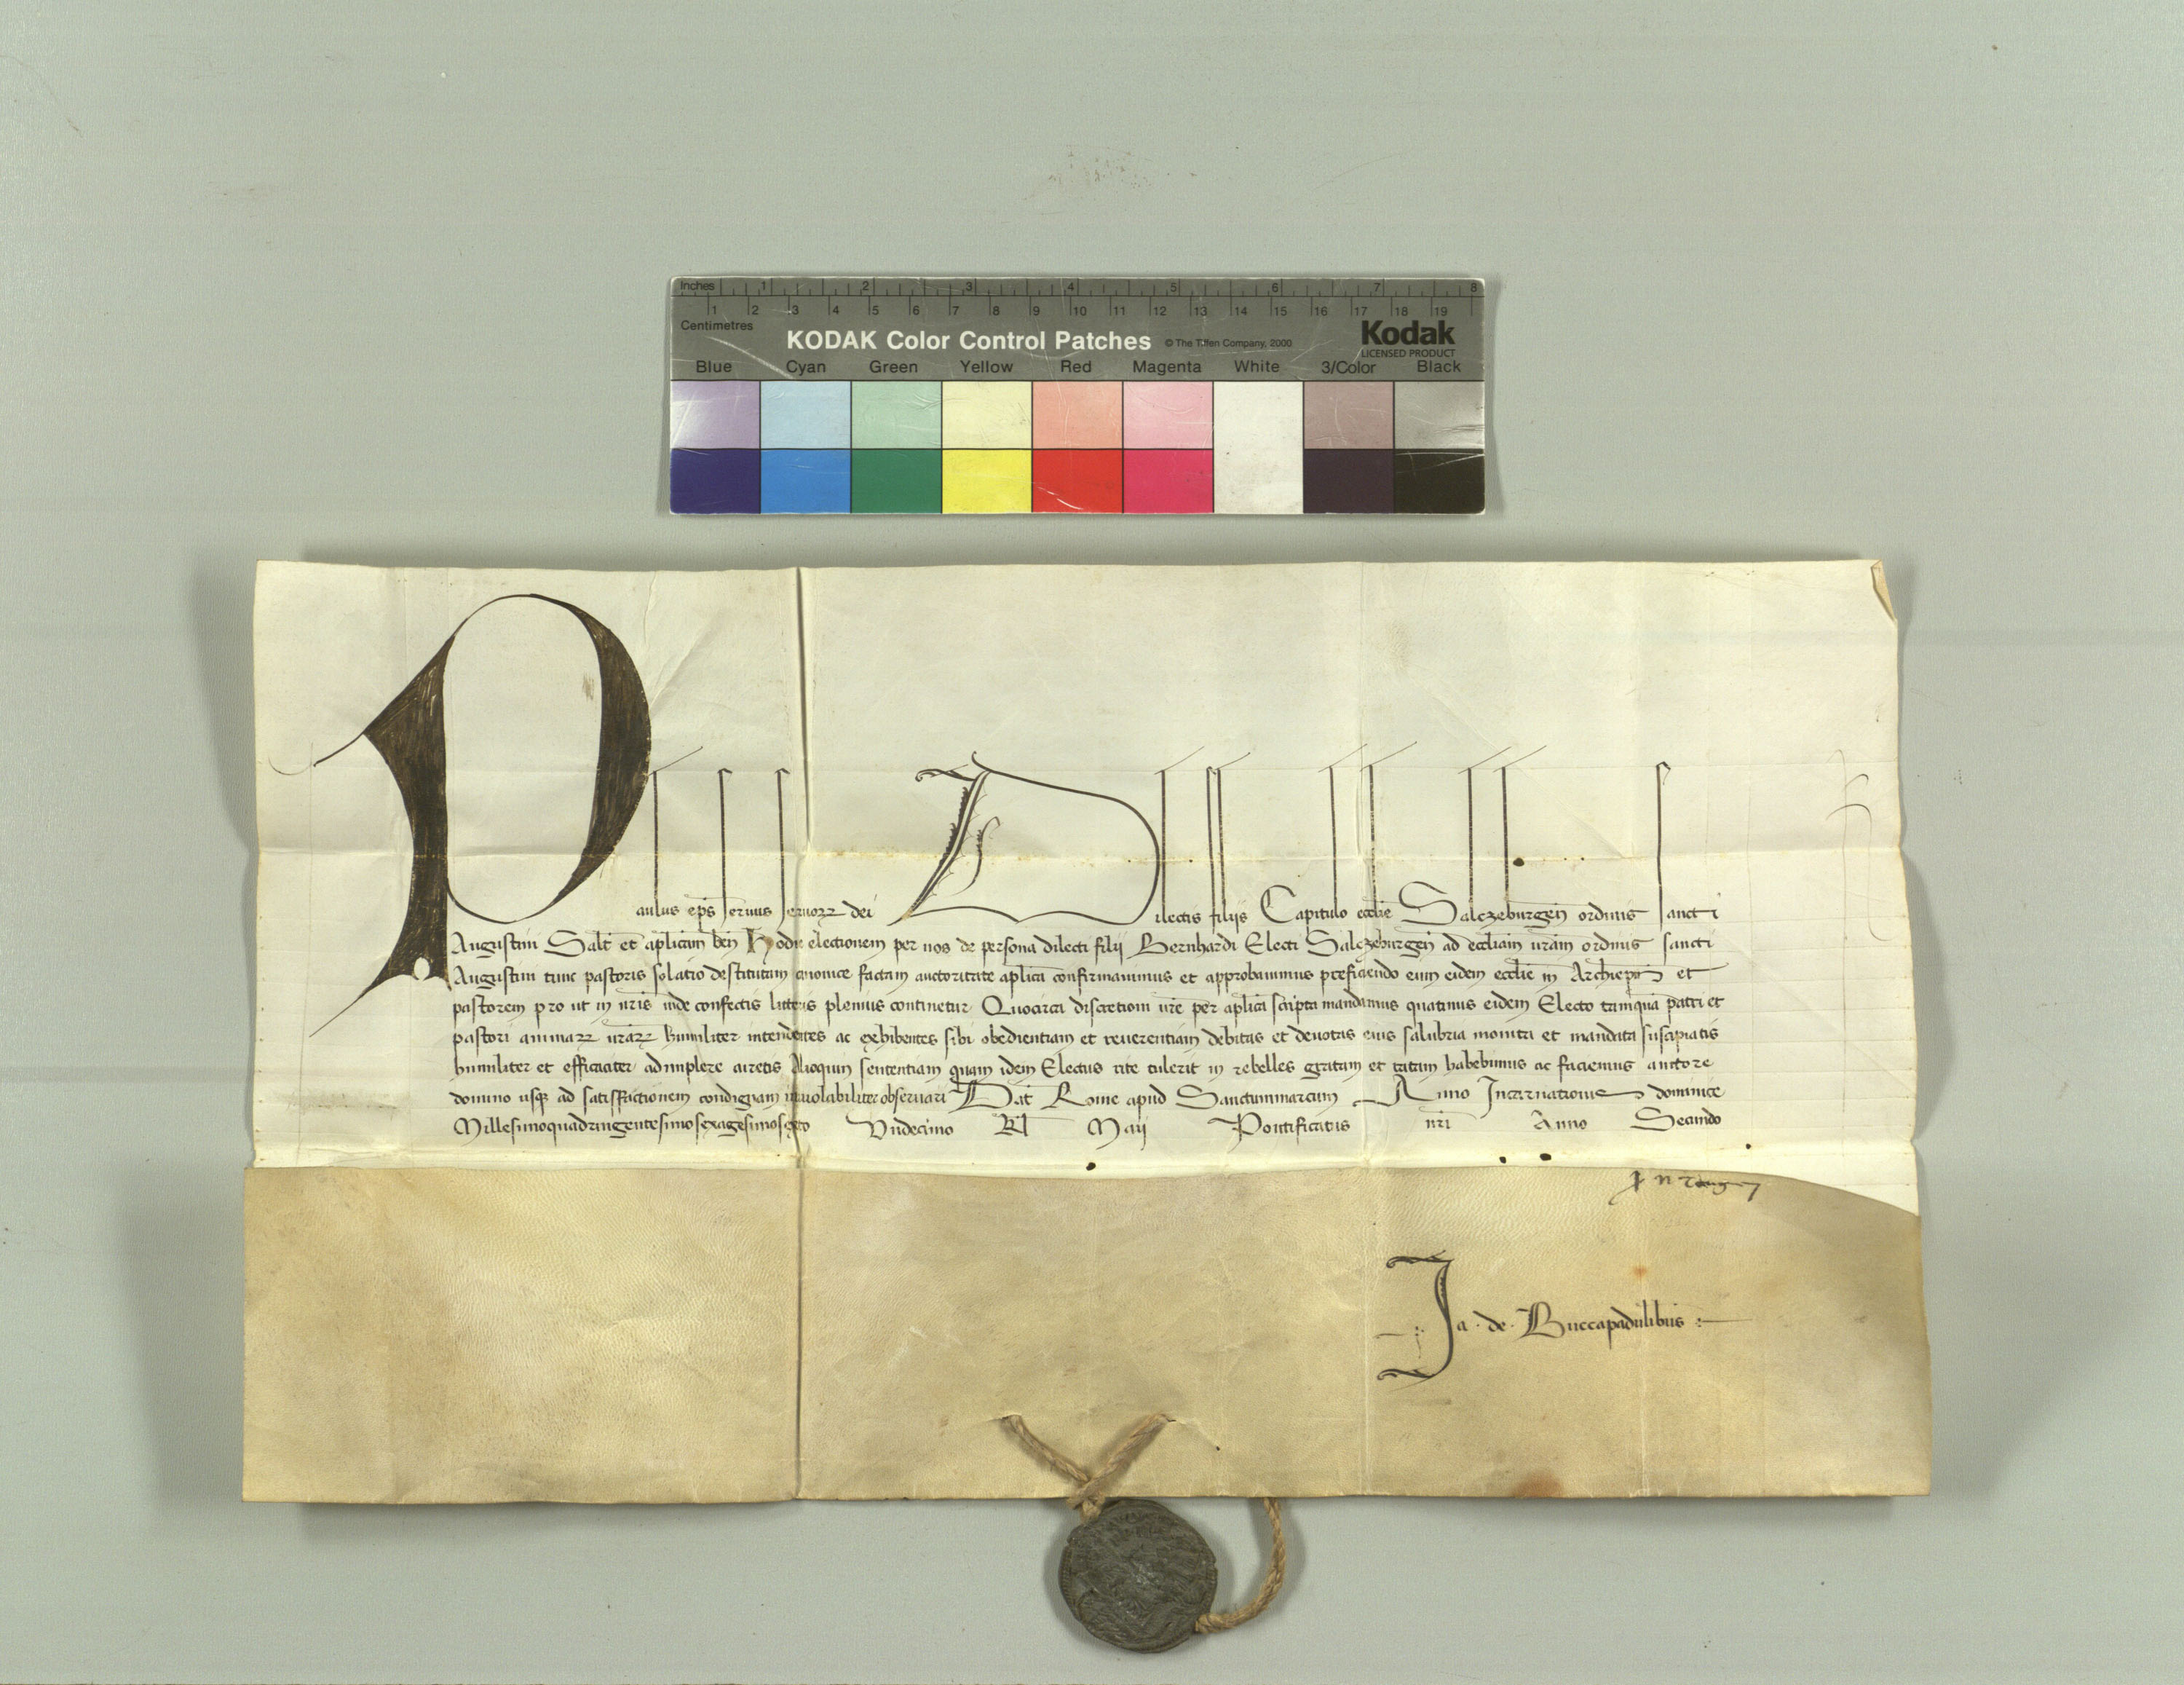 Inches 1 2 3 4 5 6 7 8
1 2 3 4 5 6 7 8 9 10 11 12 13 14 15 16 17 18 19
Centimetres
KODAK Color Control Patches © The Tiffen Company, 2000 Kodak
LICENSED PRODUCT
Blue Cyan Green Yellow Red Magenta White 3/Color Black
Paulus ep̄s servus servoꝝ dei Dilectis filijs Capitulo eccl̄ie Salczeburgen̄ ordinis sancti
Augustini Salt̄ et ap̄licam ben̄ Hodie electionem per nos de persona dilecti filij Bernhardi Electi Salczeburgen̄ ad eccl̄iam vr̄am ordinis sancti
Augustini tunc pastoris solatio destitutam canonice factam auctoritate ap̄lica confirmavimus et approbavimus preficiendo eum eidem eccl̄ie in Archiep̄m et
pastorem pro ut in nr̄is inde confectis litteris plenius continetur Quocirca discretioni vr̄e per ap̄lica scripta mandamus quatinus eidem Electo tamquā patri et
pastori animaꝝ vr̄aꝝ humiliter intendentes ac exhibentes sibi obedientiam et reverentiam debitas et devotas eius salubria monita et mandata suscipiatis
humiliter et efficaciter adimplere curetis Alioquin sententiam quam idem Electus rite tulerit in rebelles gratam et ratam habebimus ac faciemus auctore
domino usqꝫ ad satisfactionem condignam inviolabiliter observari Dat̄ Rome apud Sanctummarcum Anno Incarnationis dominice
Millesimoquadringentesimosexagesimosexto Undecimo Kl̄ Maij Pontificatus nr̄i Anno Secundo
Ja. de. Buccapadulibus